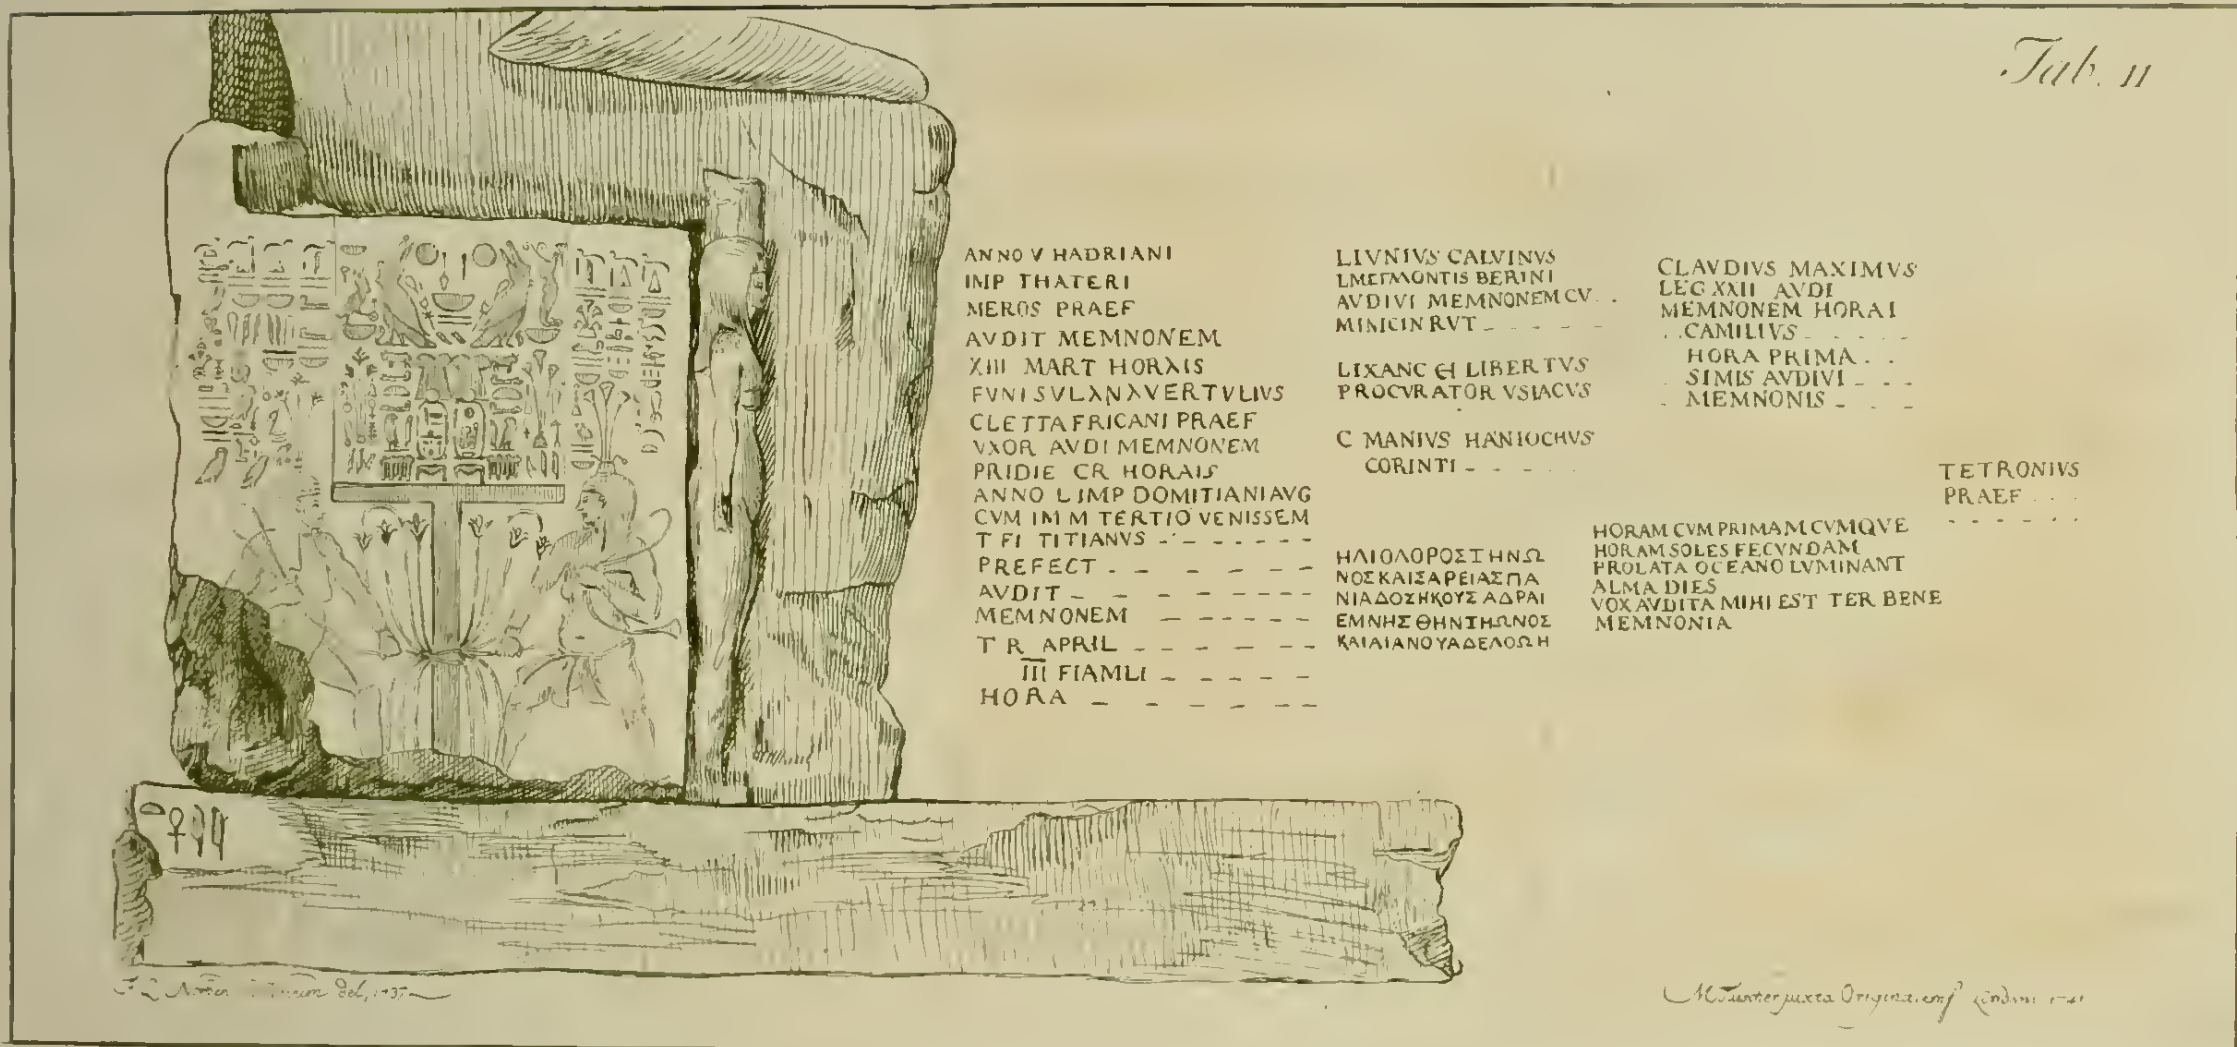 Tab. II
ANNO V HADRIANI
IMP THATERI
MEROS PRAEF
AVDIT MEMNONEM
XIII MART HORλIS
FVNISVLλNλVERTVLIVS
CLETTAFRICANI PRAEF
VXOR AVDI MEMNONEM
PRIDIE CR HORAIS
ANNO L IMP DOMITIANI AVG
CVM IM M TERTIO VENISSEM
T FI TITIANVS - - - - - - -
PREFECT - - - - - -
AVDIT - - - - - - - -
MEMNONEM - - - - - -
T R APRIL - - - - - - -
III FIAMLI - - - - -
HORA - - - - - -
LIVNIVS CALVINVS
LMEΓMONTIS BERINI
AVDIVI MEMNONEM CV . .
MINICIN RVT - - - - -
LIXANC EI LIBERTVS
PROCVRATOR VSIACVS
C MANIVS HANIOCHVS
CORINTI - - - - -
ΗΛΙΟΛΟΡΟΣΤΗΝΩ
ΝΟΣΚΑΙΣΑΡΕΙΑΣΠΑ
ΝΙΑΔΟΣΗΚΟΥΣ ΑΔΡΑΙ
ΕΜΝΗΣΘΗΝΣΗΩΝΟΣ
ΚΑΙΑΙΑΝΟΥΑΔΕΛΟΩΗ
CLAVDIVS MAXIMVS
LEG XXII AVDI
MEMNONEM HORAI
. . CAMILIVS - - - - -
HORA PRIMA . . .
. SIMIS AVDIVI - - -
. MEMNONIS - - -
HORAM CVM PRIMAM CVMQVE
HORAM SOLES FECVNDAM
PROLATA OCEANO LVMINANT
ALMA DIES
VOX AVDITA MIHI EST TER BENE
MEMNONIA
TETRONIVS
PRAEF . . .
- - - - - -
del, 1737
Londini 1741